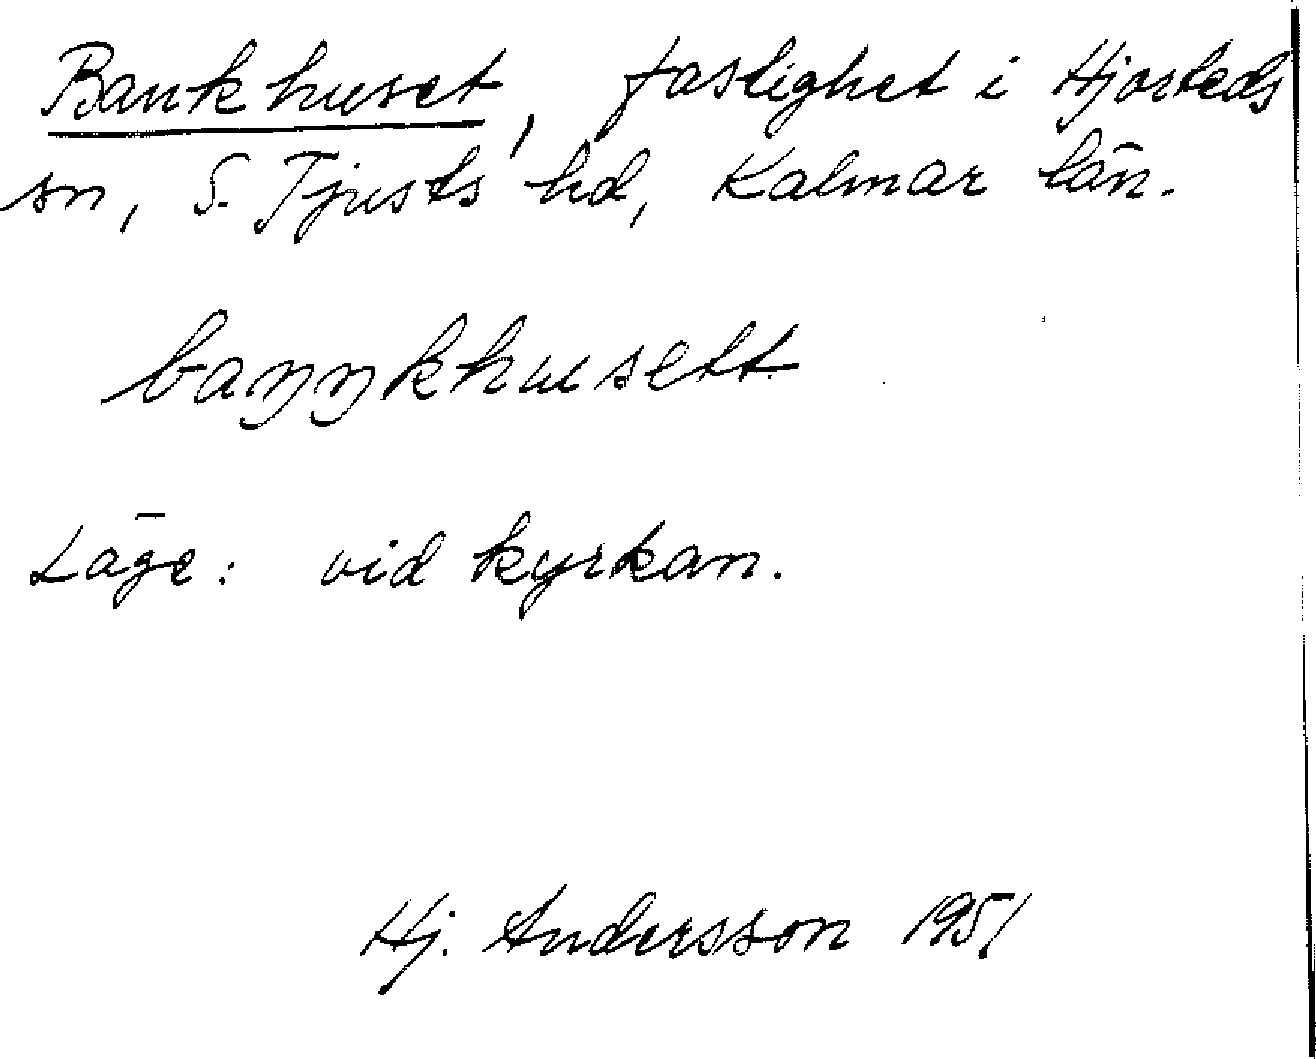 Bankhuset, fastighet i Hjorteds
sn, S. Tjusts hd, Kalmar län.
baŋŋkhusett
Läge: vid kyrkan.
Hj. Andersson 1951